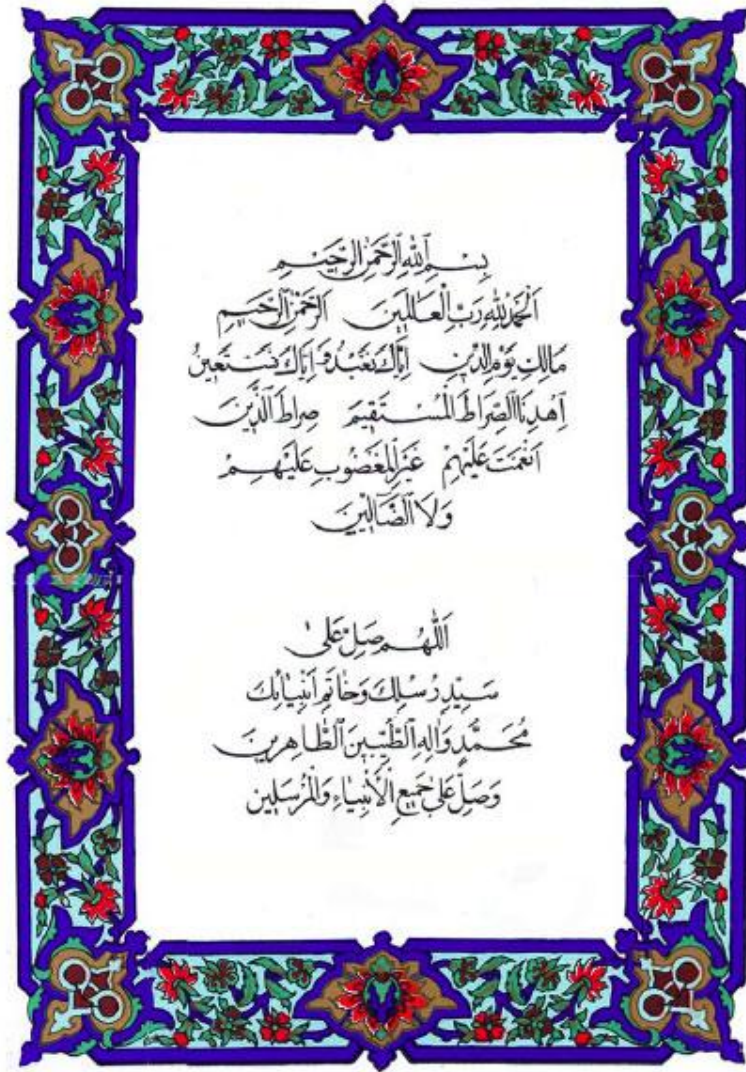 بِسْمِ ٱللّٰهِ ٱلرَّحْمٰنِ ٱلرَّحِيمِ
اَلْحَمْدُ لِلّٰهِ رَبِّ الْعَالَمِينَ اَلرَّحْمٰنِ ٱلرَّحِيمِ
مَالِكِ يَوْمِ الدِّينِ اِيَّاكَ نَعْبُدُ وَ اِيَّاكَ نَسْتَعِينُ
اِهْدِنَا الصِّرَاطَ الْمُسْتَقِيمَ صِرَاطَ الَّذِينَ
اَنْعَمْتَ عَلَيْهِمْ غَيْرِ الْمَغْضُوبِ عَلَيْهِمْ
وَلَا الضَّالِّينَ
اَللّٰهُمَّ صَلِّ عَلىٰ
سَيِّدِ رُسُلِكَ وَخَاتَمِ اَنْبِيَائِكَ
مُحَمَّدٍ وَاٰلِهِ الطَّيِّبِينَ الطَّاهِرِينَ
وَصَلِّ عَلىٰ جَمِيعِ الْأَنْبِيَاءِ وَالْمُرْسَلِين